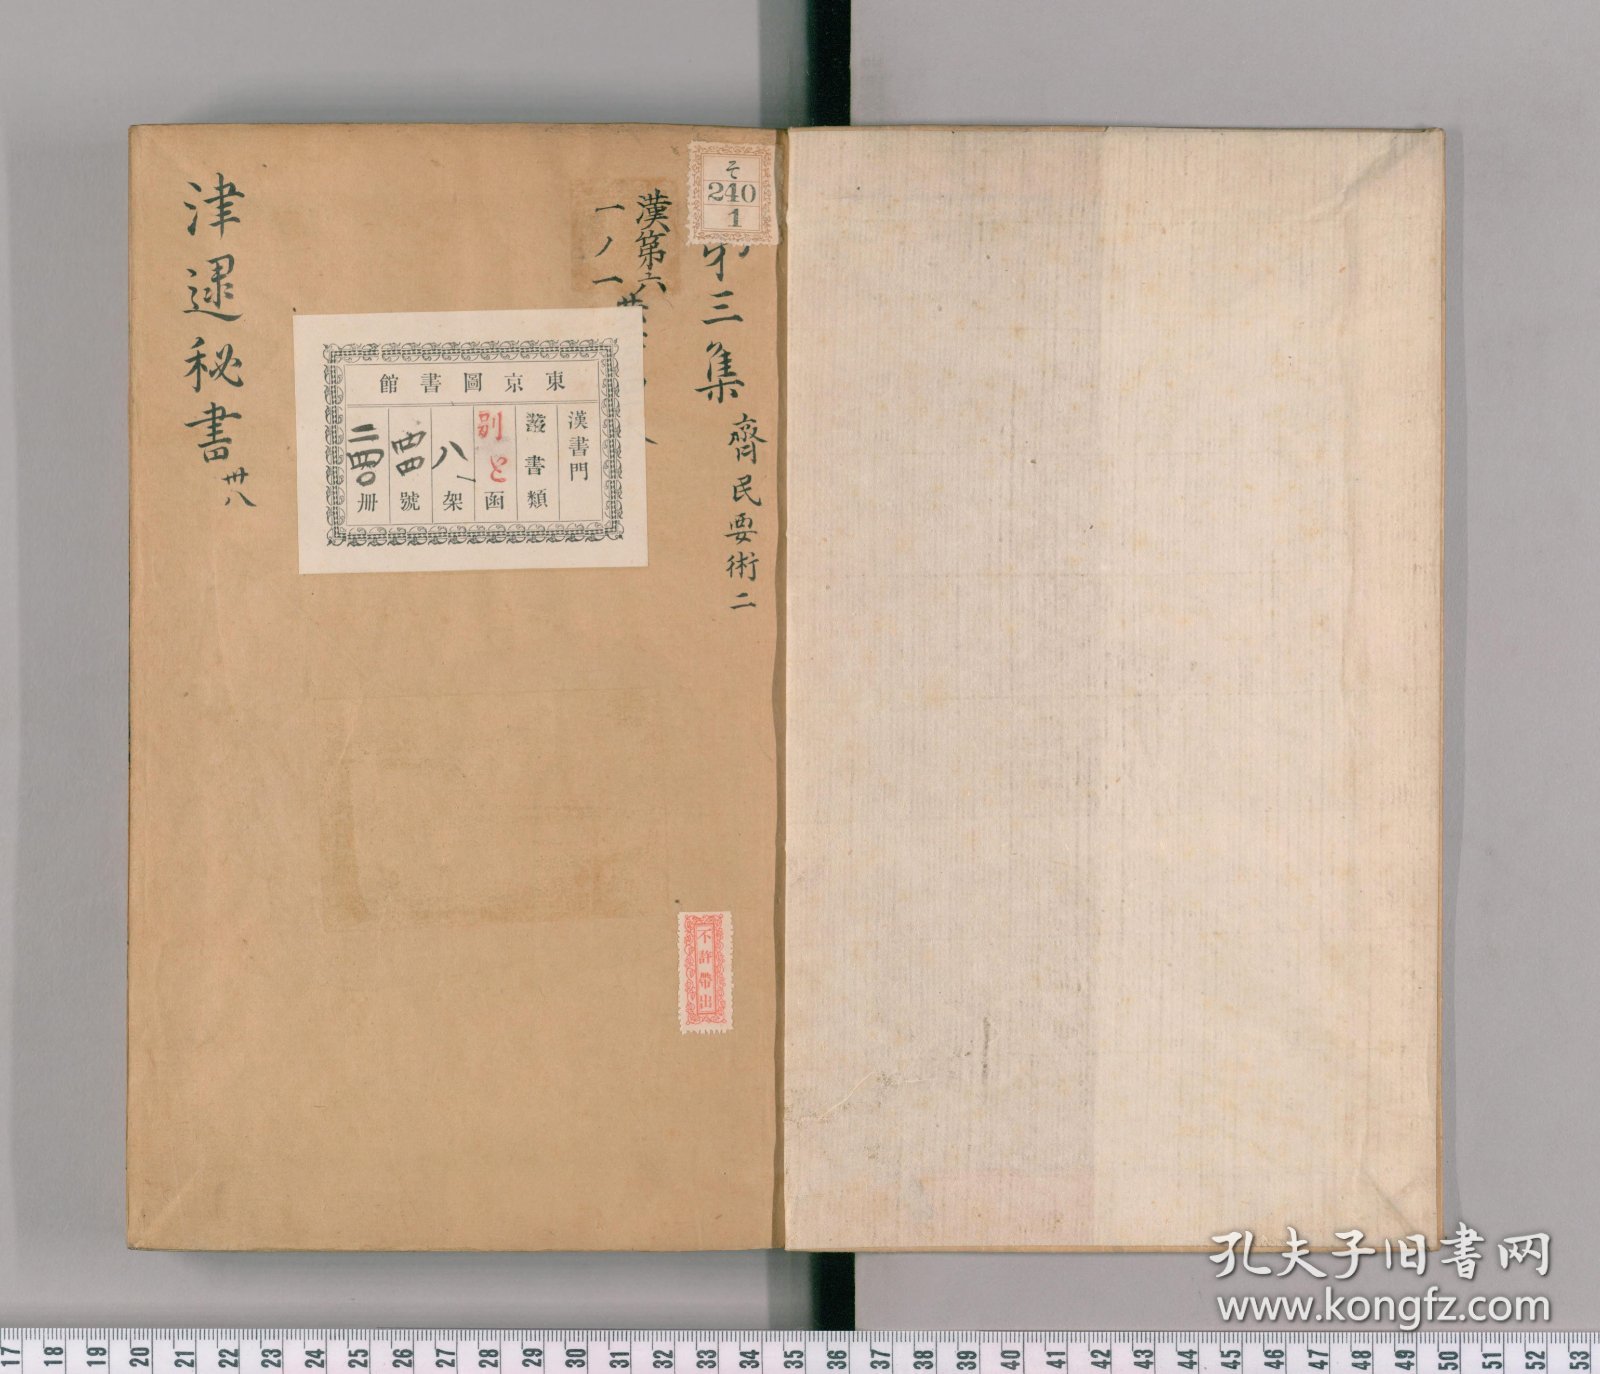 そ
240
1
第三集
齊民要術二
漢第六
一ノ一
東京圖書館
漢書門
叢書類
別と函
八架
四四號
二四〇册
津逮秘書
卅八
不許帶出
孔夫子旧书网
www.kongfz.com
17 18 19 20 21 22 23 24 25 26 27 28 29 30 31 32 33 34 35 36 37 38 39 40 41 42 43 44 45 46 47 48 49 50 51 52 53